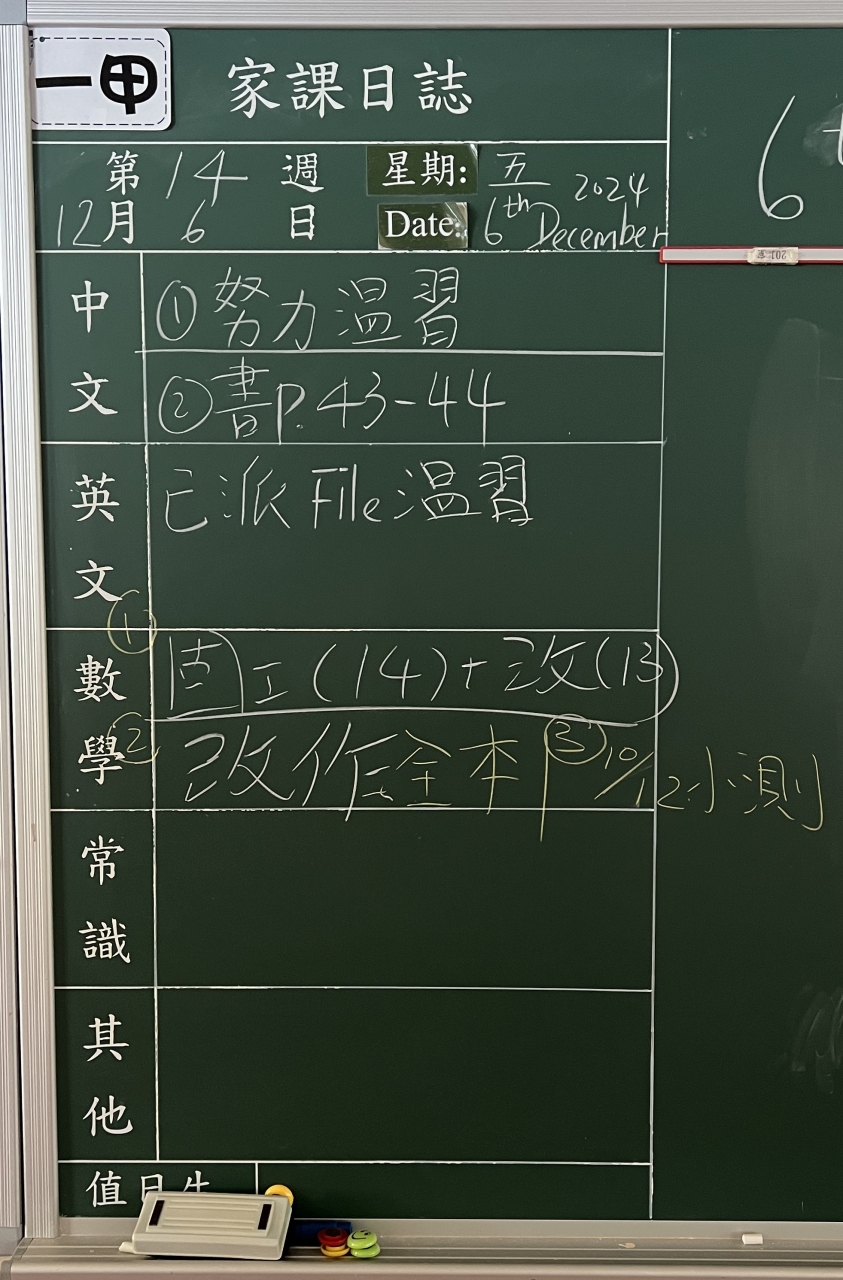 一甲
家課日誌
第14週 星期: 五 2024
12月6日 Date: 6th December
6
中文
①努力温習
②書P.43-44
英文
已派File温習
數學
① 固工(14)+改(13)
② 改作全本 ③10/12小測
常識
其他
值日生